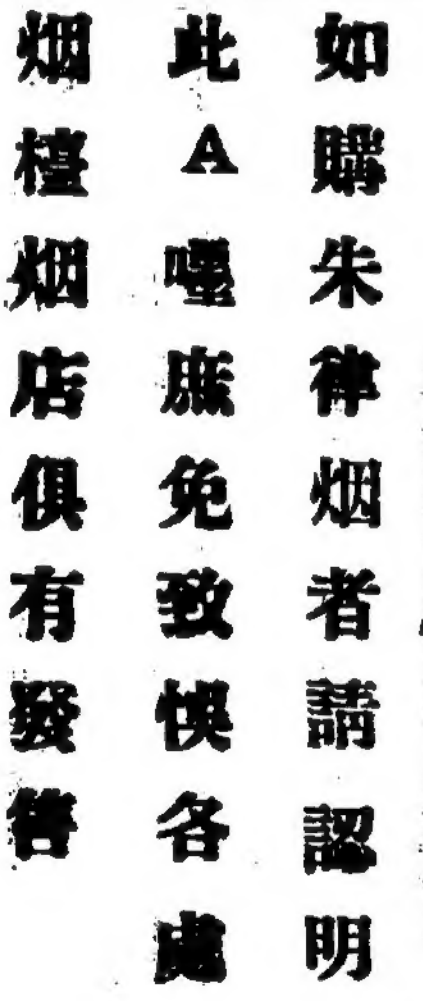 如購朱律烟者請認明
此A嘜庶免致悞各處
烟檯烟店俱有發售